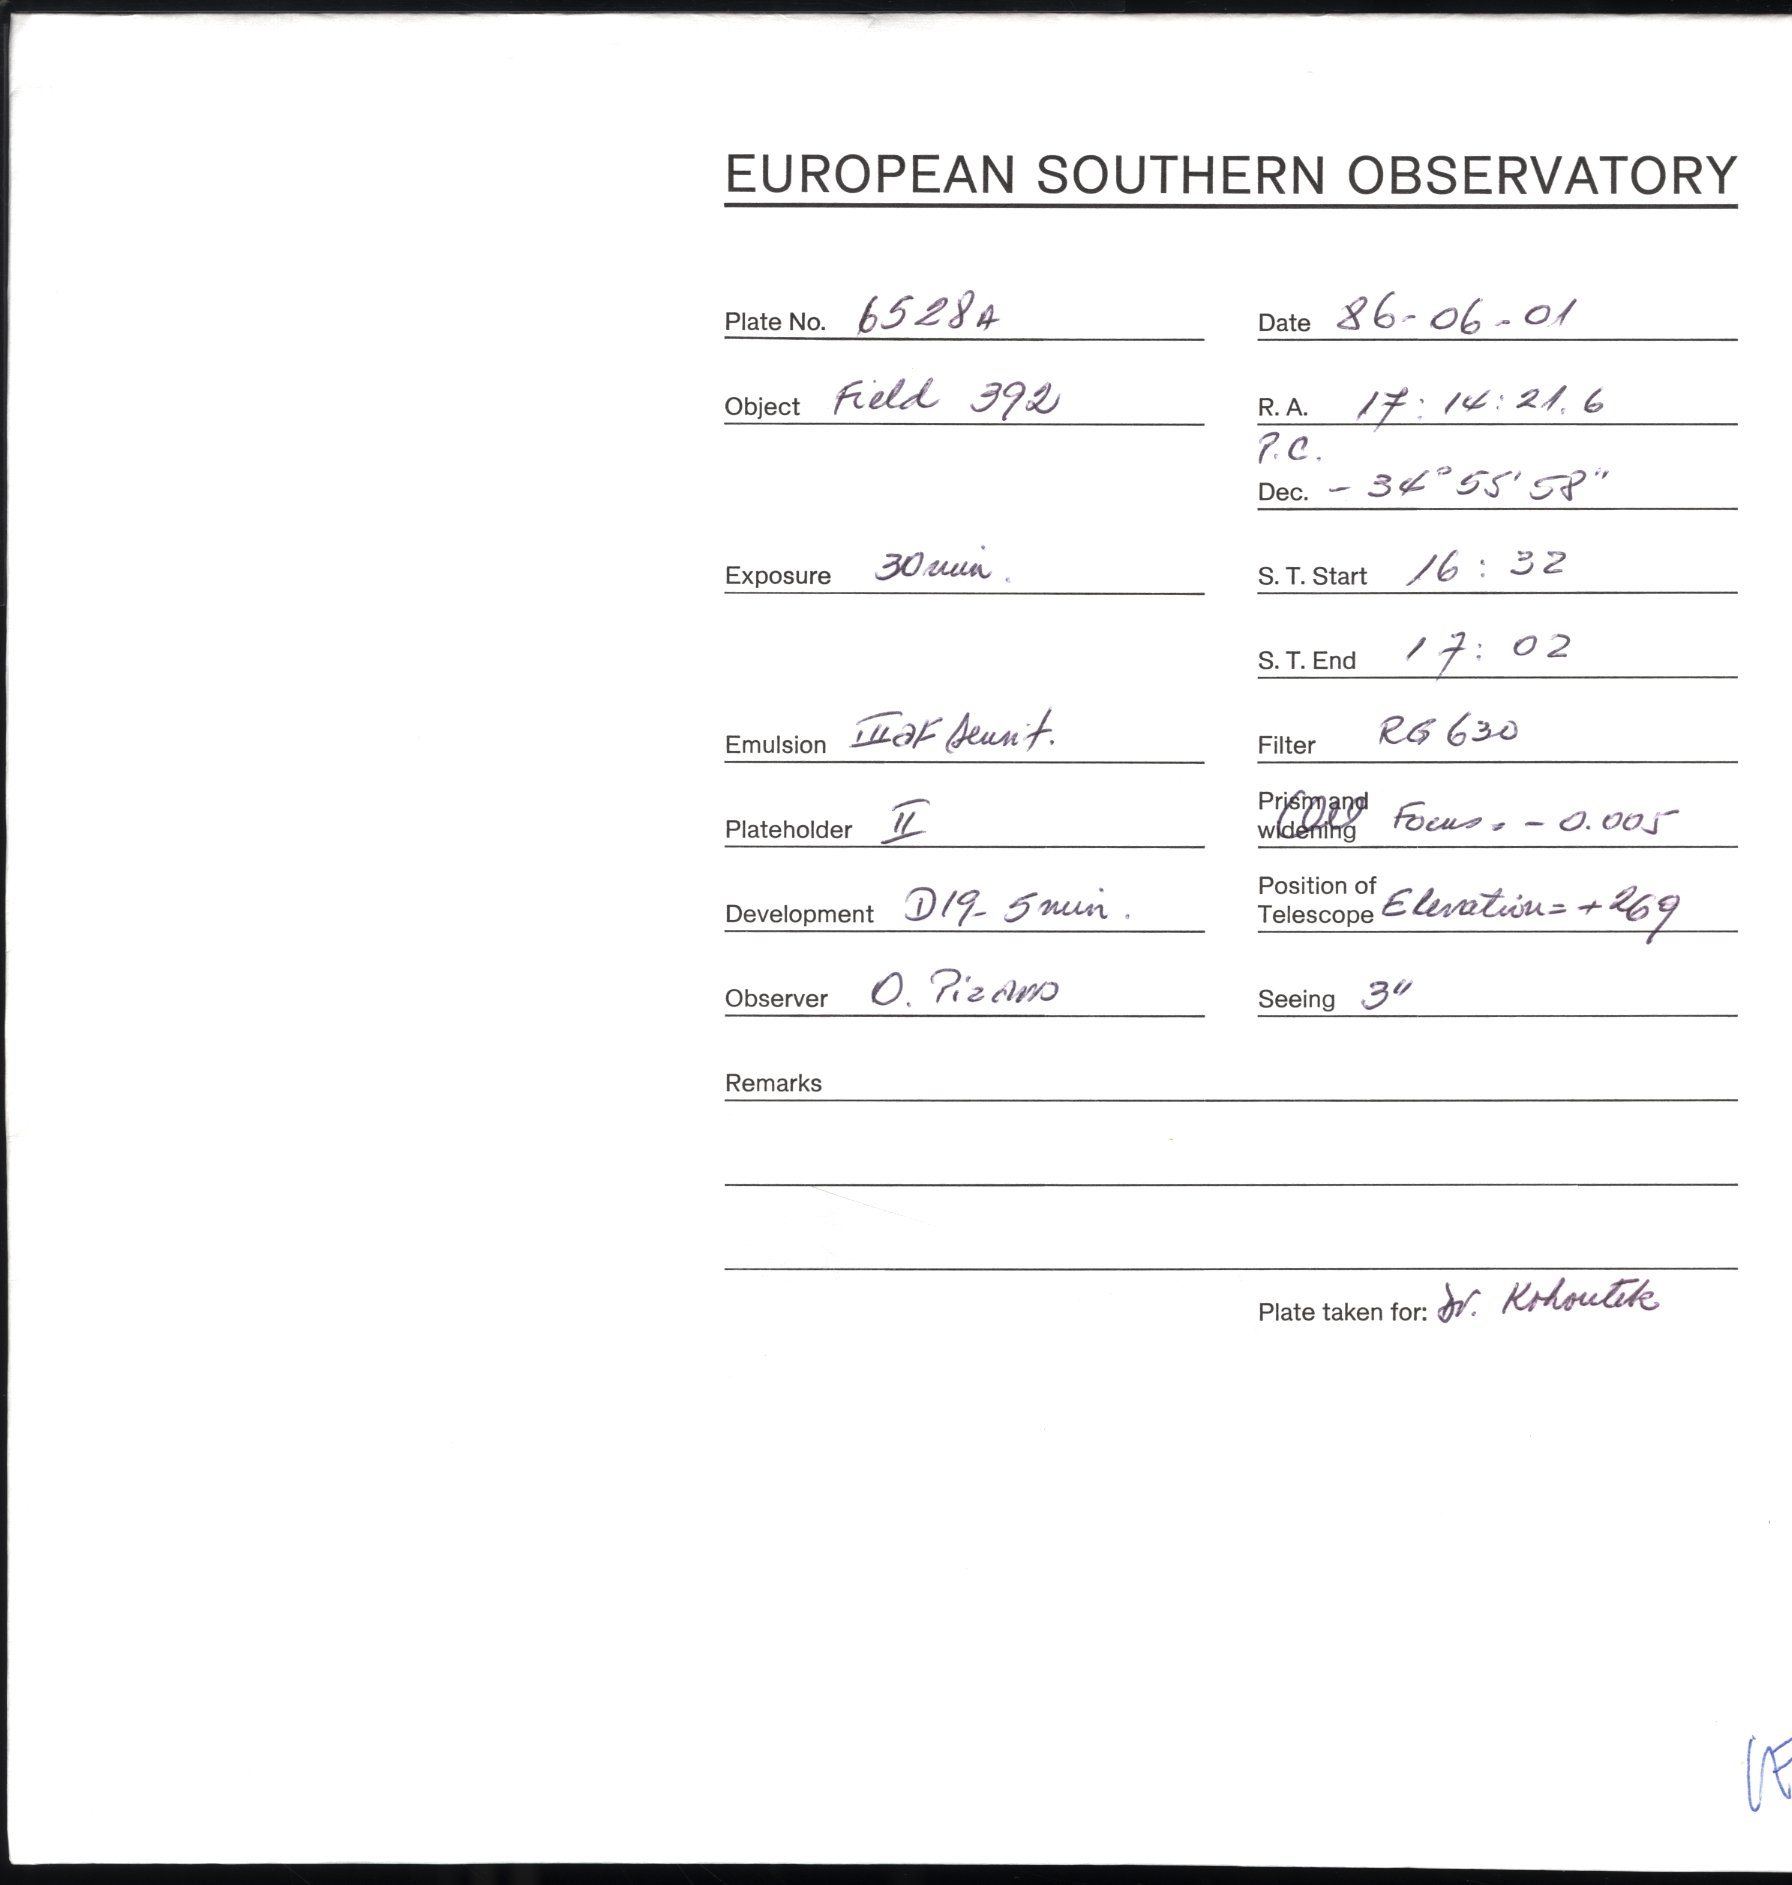 EUROPEAN SOUTHERN OBSERVATORY
Plate No. 6528A
Date 86-06-01
Object Field 392
R. A. 17:14:21.6
P.C.
Dec. - 34° 55' 58"
Exposure 30 min.
S. T. Start 16:32
S. T. End 17:02
Emulsion IIIaF
Filter RG 630
Plateholder II
Prism and widening Focus. - 0.005
Development D19- 5 min.
Position of Telescope Elevation= +269
Observer O. Pizarro
Seeing 3"
Remarks
Plate taken for: Dr. Kohoutek